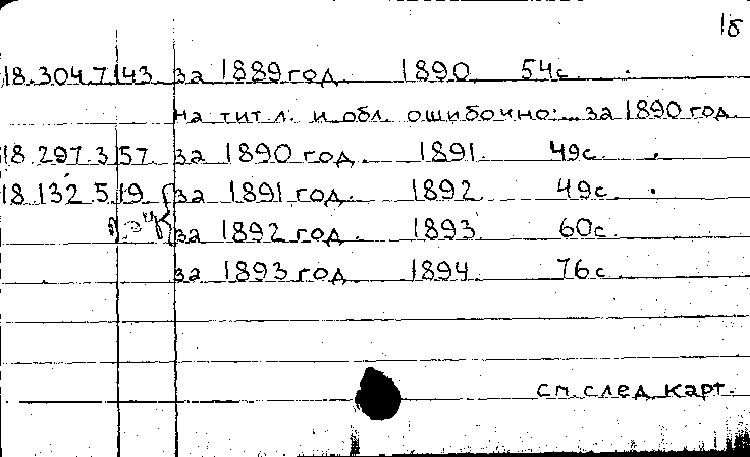 18
18.304.7.143. за 1889 год. 1890. 54с.
на тит. л. и обл. ошибочно: за 1890 год.
18.297.3.57. за 1890 год. 1891. 49с.
18.132.5.19. за 1891 год. 1892. 49с.
за 1892 год. 1893. 60с.
за 1893 год. 1894. 76с.
см. след. карт.